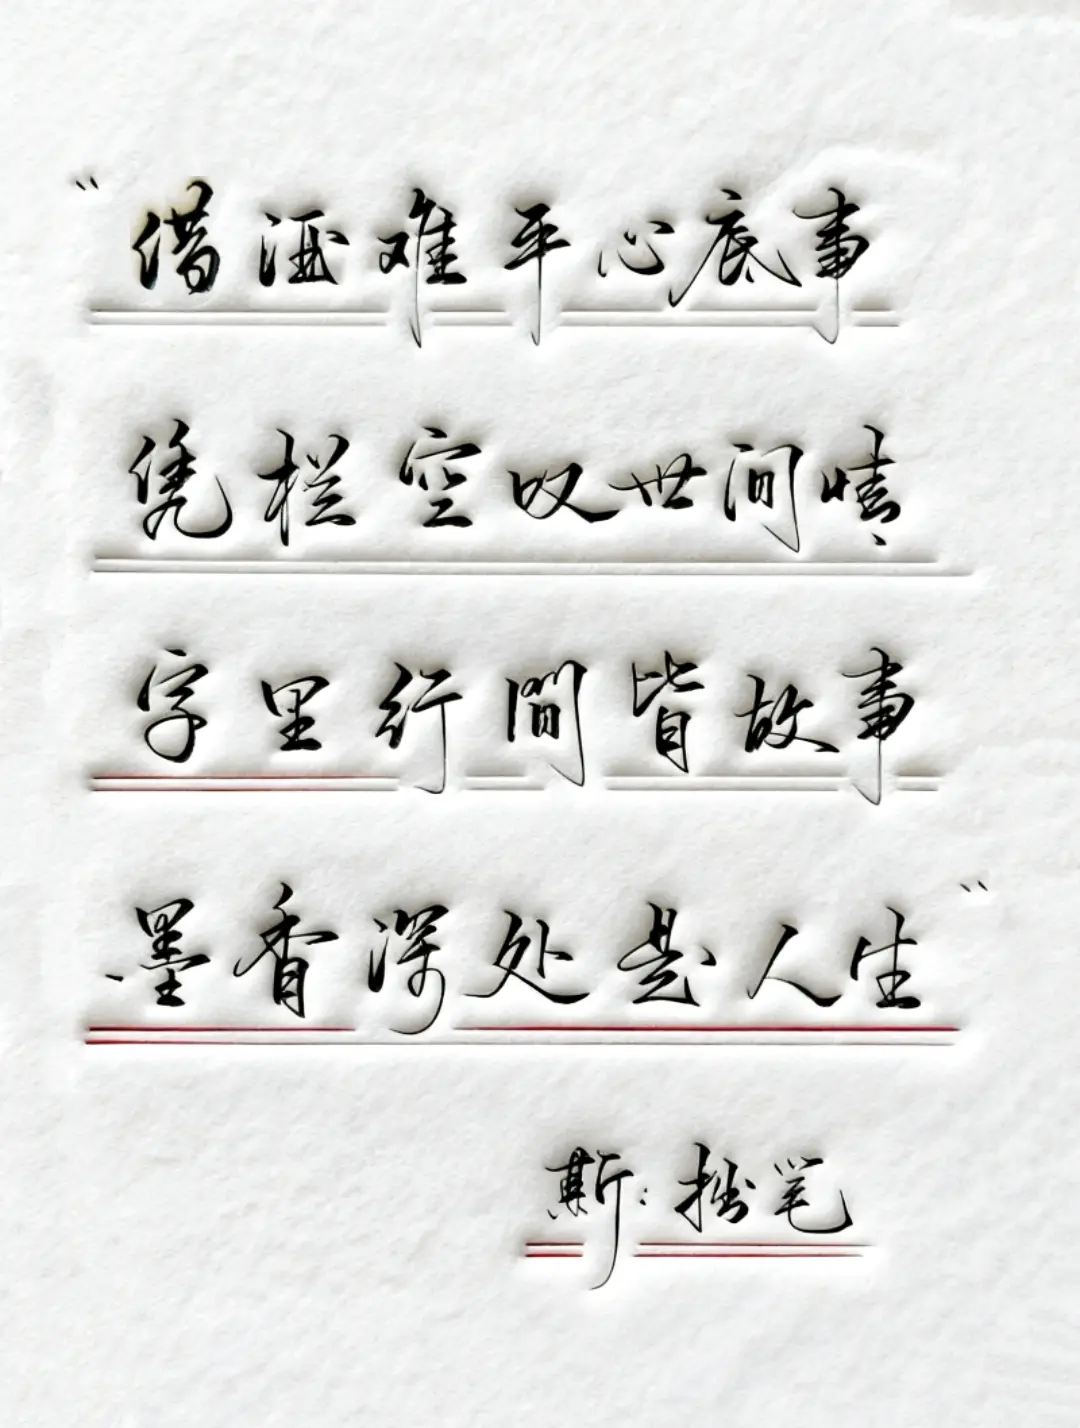 “借酒难平心底事
凭栏空叹世间情
字里行間皆故事
墨香深处是人生”
斯：拙笔